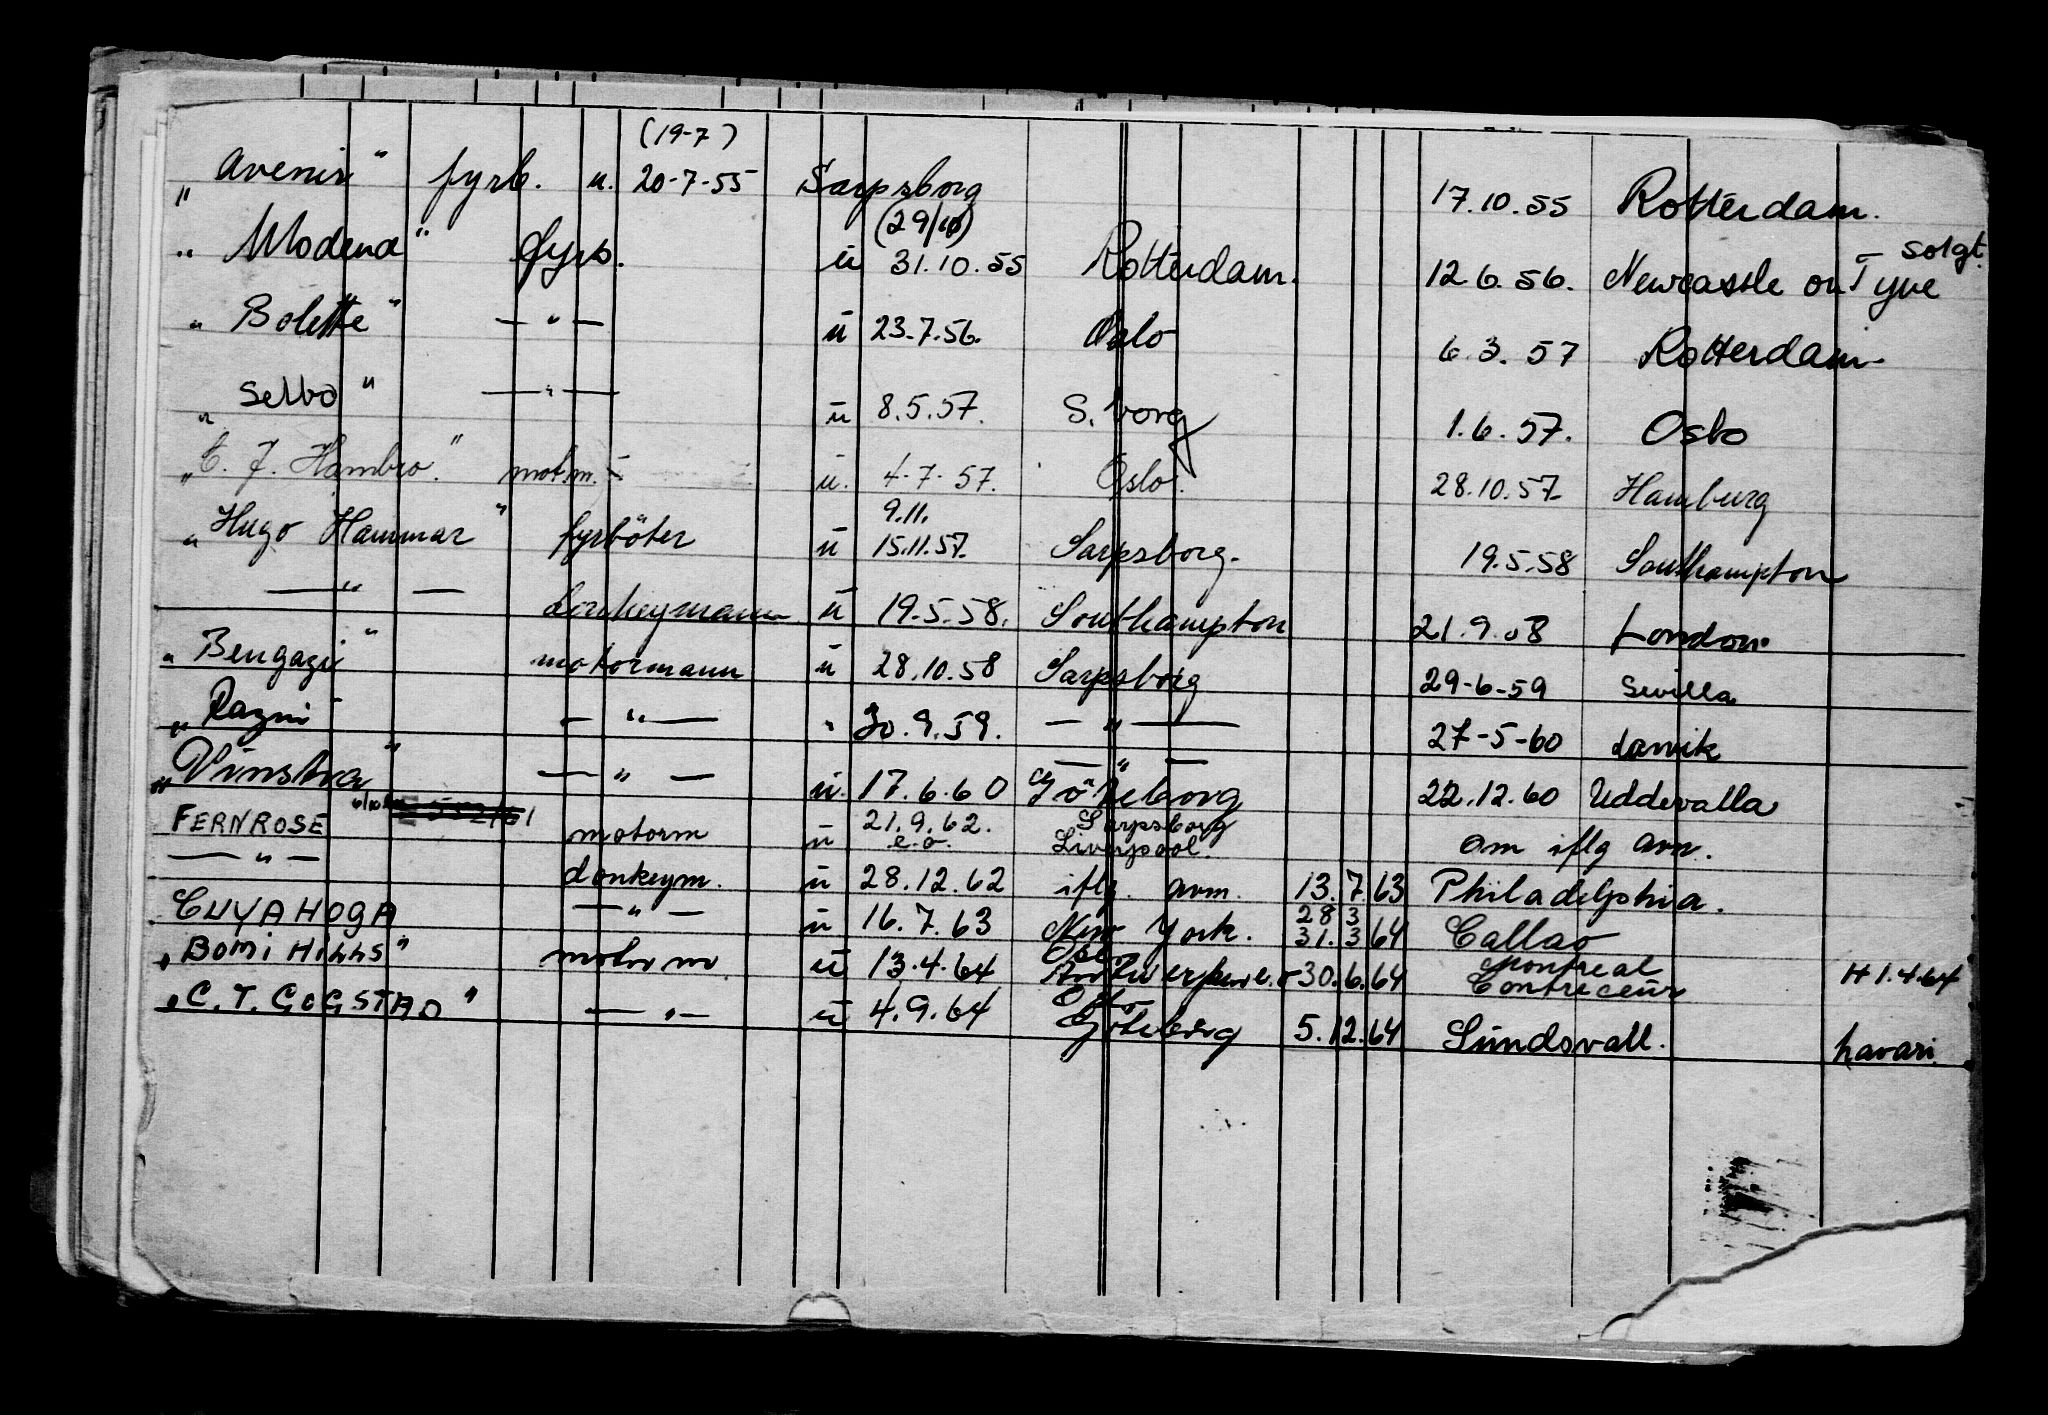 (19-7)
"Avenir" fyrb. u. 20-7-55 Sarpsborg 17.10.55 Rotterdam.
(29/10) solgt.
"Modena" fyrb. u 31.10.55 Rotterdam. 12.6.56. Newcastle on Tyne
"Bolette" — " — u 23.7.56. Oslo 6.3.57 Rotterdam
"Selbo" — " — u 8.5.57. S.borg 1.6.57. Oslo
"C. J. Hambro." motm. u. 4-7-57. Oslo. 28.10.57 Hamburg
9.11.
"Hugo Hammar" fyrböter u 15.11.57. Sarpsborg. 19.5.58 Southampton
— " — donkeymann u 19.5.58. Southampton 21.9.58 London
"Bengazi" motormann u 28.10.58 Sarpsborg 29-6-59 Sevilla
"Razni — " — " 30.9.59. — " — 27-5-60 Larvik
— " —
"Vinstra" — " — u. 17.6.60 Göteborg 22.12.60 Uddevalla
21.9.62. Sarpsborg
FERNROSE motorm u e.o. Liverpool. om iflg avm.
— " — donkeym. u 28.12.62 iflg. avm. 13.7.63 Philadelphia.
28 3
CUYAHOGA — " — u 16.7.63 New York. 31.3 64 Callao
Oslo Montreal
"BOMI HILLS" motorm u 13.4.64 Antwerpen e.o 30.6.64 Contreceur H 1.4.64
"C. T. GOGSTAD" — " — u 4.9.64 Göteborg 5.12.64 Sundsvall. havari.